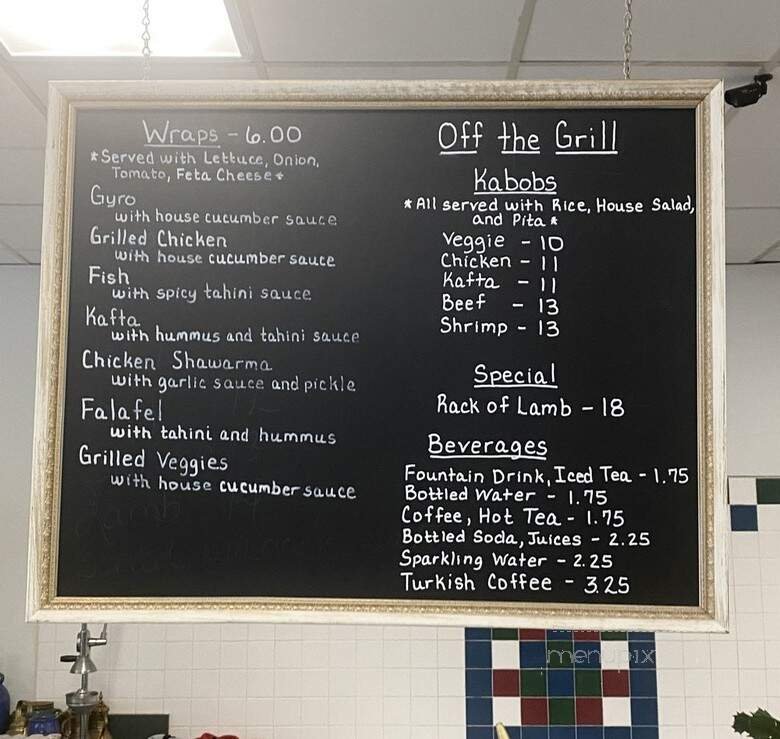 Wraps - 6.00
*Served with Lettuce, Onion,
Tomato, Feta Cheese*
Gyro
with house cucumber sauce
Grilled Chicken
with house cucumber sauce
Fish
with spicy tahini sauce
Kafta
with hummus and tahini sauce
Chicken Shawarma
with garlic sauce and pickle
Falafel
with tahini and hummus
Grilled Veggies
with house cucumber sauce
Off the Grill
Kabobs
*All served with Rice, House Salad,
and Pita*
Veggie - 10
Chicken - 11
Kafta - 11
Beef - 13
Shrimp - 13
Special
Rack of Lamb - 18
Beverages
Fountain Drink, Iced Tea - 1.75
Bottled Water - 1.75
Coffee, Hot Tea - 1.75
Bottled Soda, Juices - 2.25
Sparkling Water - 2.25
Turkish Coffee - 3.25
menupix